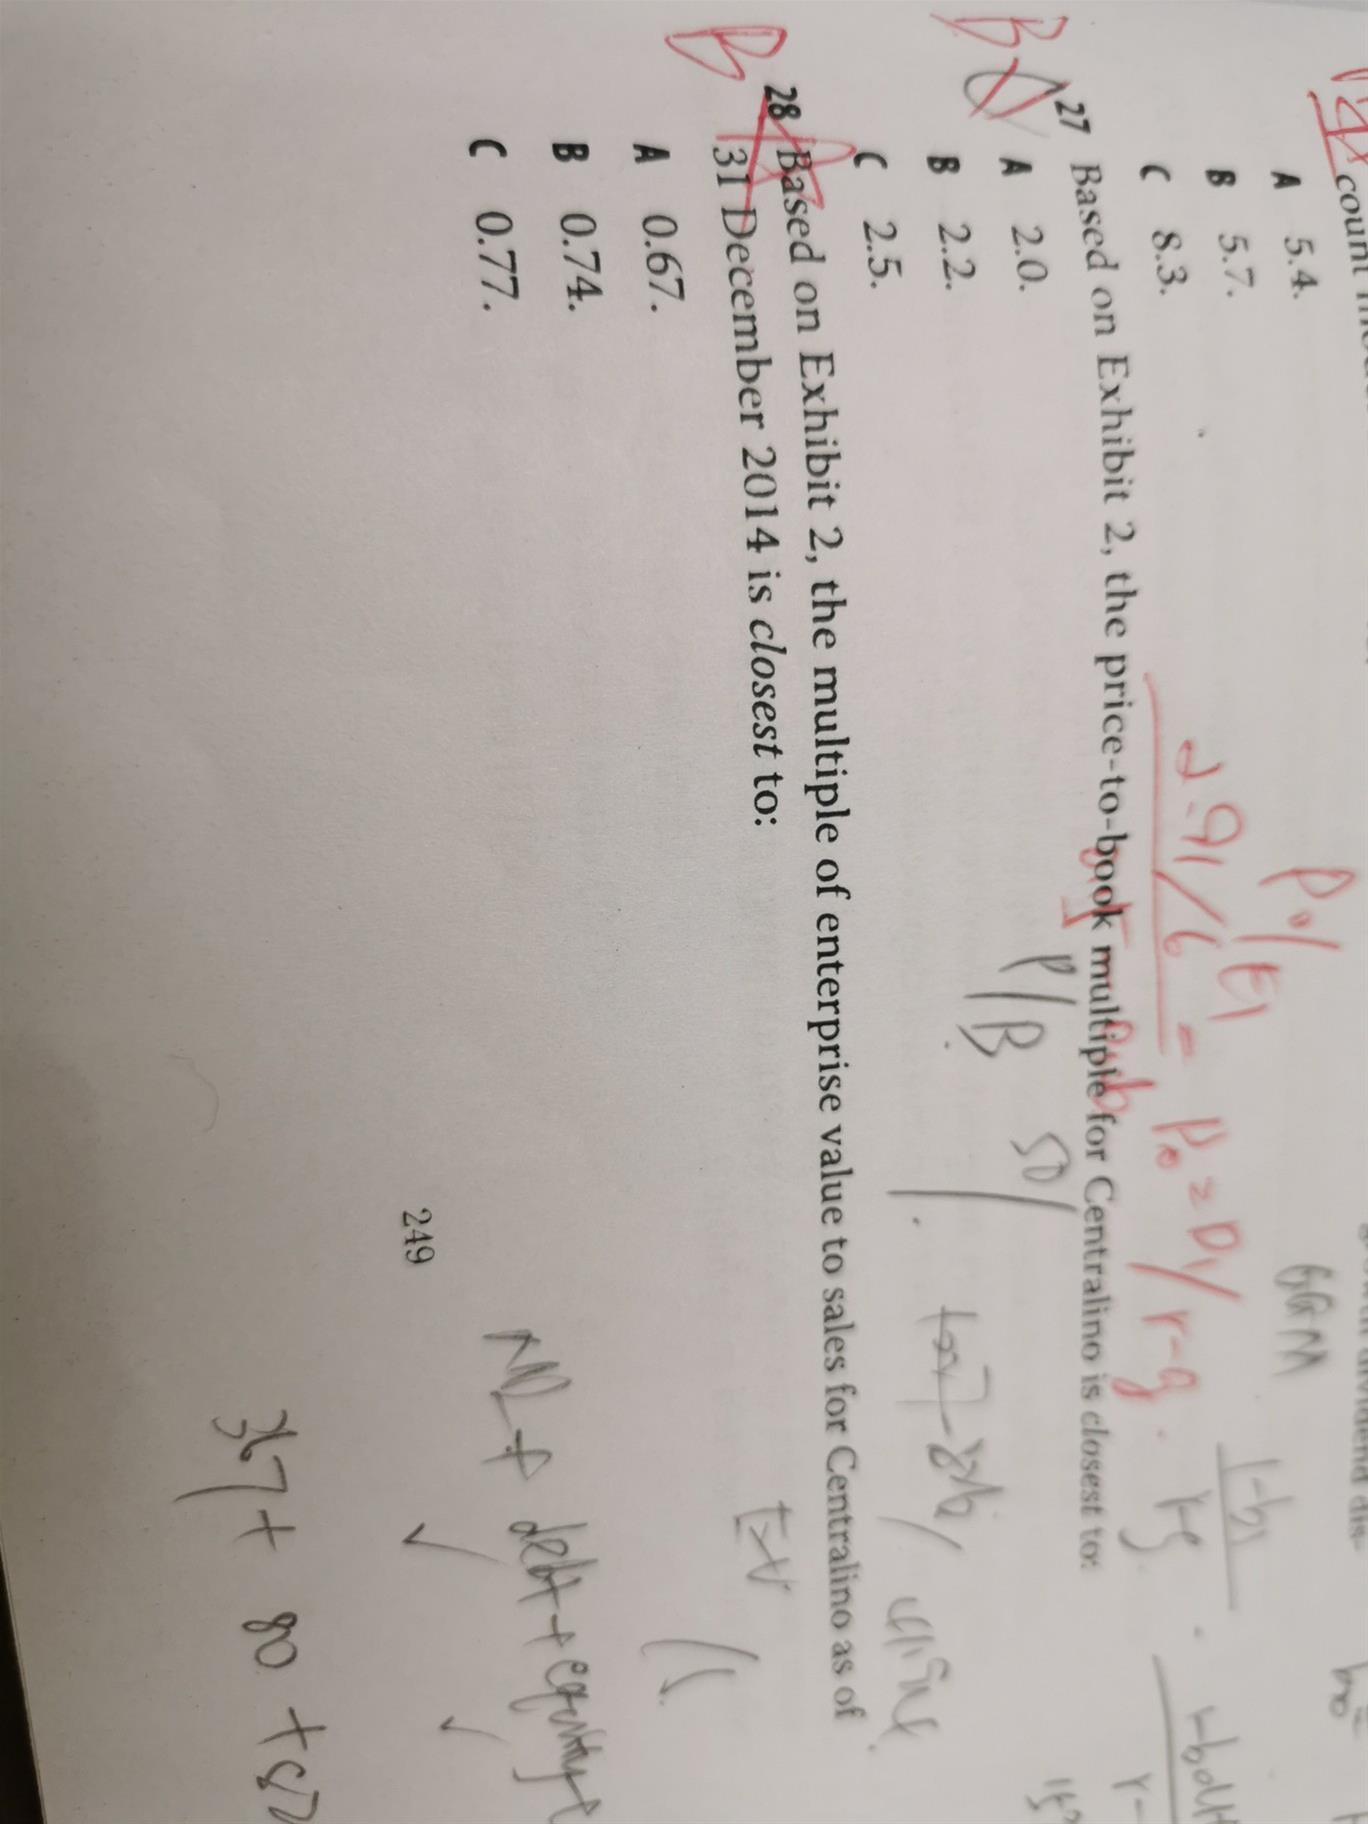 count
A 5.4.
B 5.7.
C 8.3.
P0/E1
2.91/6 = P0 = D1/r-g.
GGM
1-b
r-g
27 Based on Exhibit 2, the price-to-book multiple for Centralino is closest to:
B
A 2.0.
B 2.2.
C 2.5.
P/B
50/
28 Based on Exhibit 2, the multiple of enterprise value to sales for Centralino as of
31 December 2014 is closest to:
B
A 0.67.
B 0.74.
C 0.77.
EV
/S.
debt + equity
249
367 + 80 +